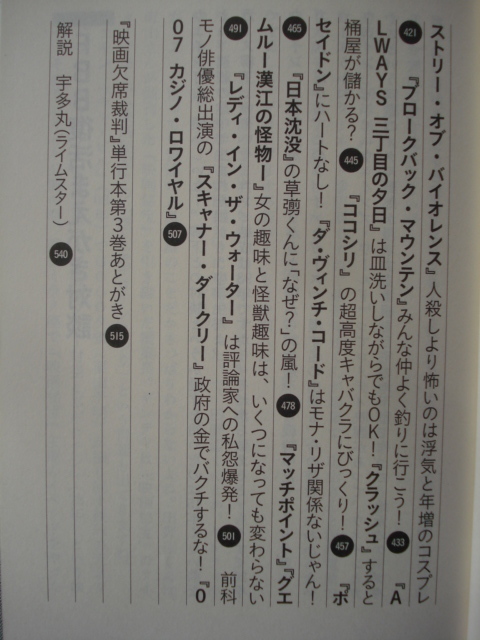 ストリー・オブ・バイオレンス』人殺しより怖いのは浮気と年増のコスプレ
421 『ブロークバック・マウンテン』みんな仲よく釣りに行こう! 433 『A
LWAYS 三丁目の夕日』は皿洗いしながらでもOK!『クラッシュ』すると
桶屋が儲かる? 445 『ココシリ』の超高度キャバクラにびっくり! 457 『ポ
セイドン』にハートなし!『ダ・ヴィンチ・コード』はモナ・リザ関係ないじゃん!
465 『日本沈没』の草彅くんに「なぜ?」の嵐! 478 『マッチポイント』『グエ
ムルー漢江の怪物ー』女の趣味と怪獣趣味は、いくつになっても変わらない
491 『レディ・イン・ザ・ウォーター』は評論家への私怨爆発! 501 前科
モノ俳優総出演の『スキャナー・ダークリー』政府の金でバクチするな!『0
07 カジノ・ロワイヤル』 507
『映画欠席裁判』単行本第3巻あとがき 515
解説 宇多丸(ライムスター) 540